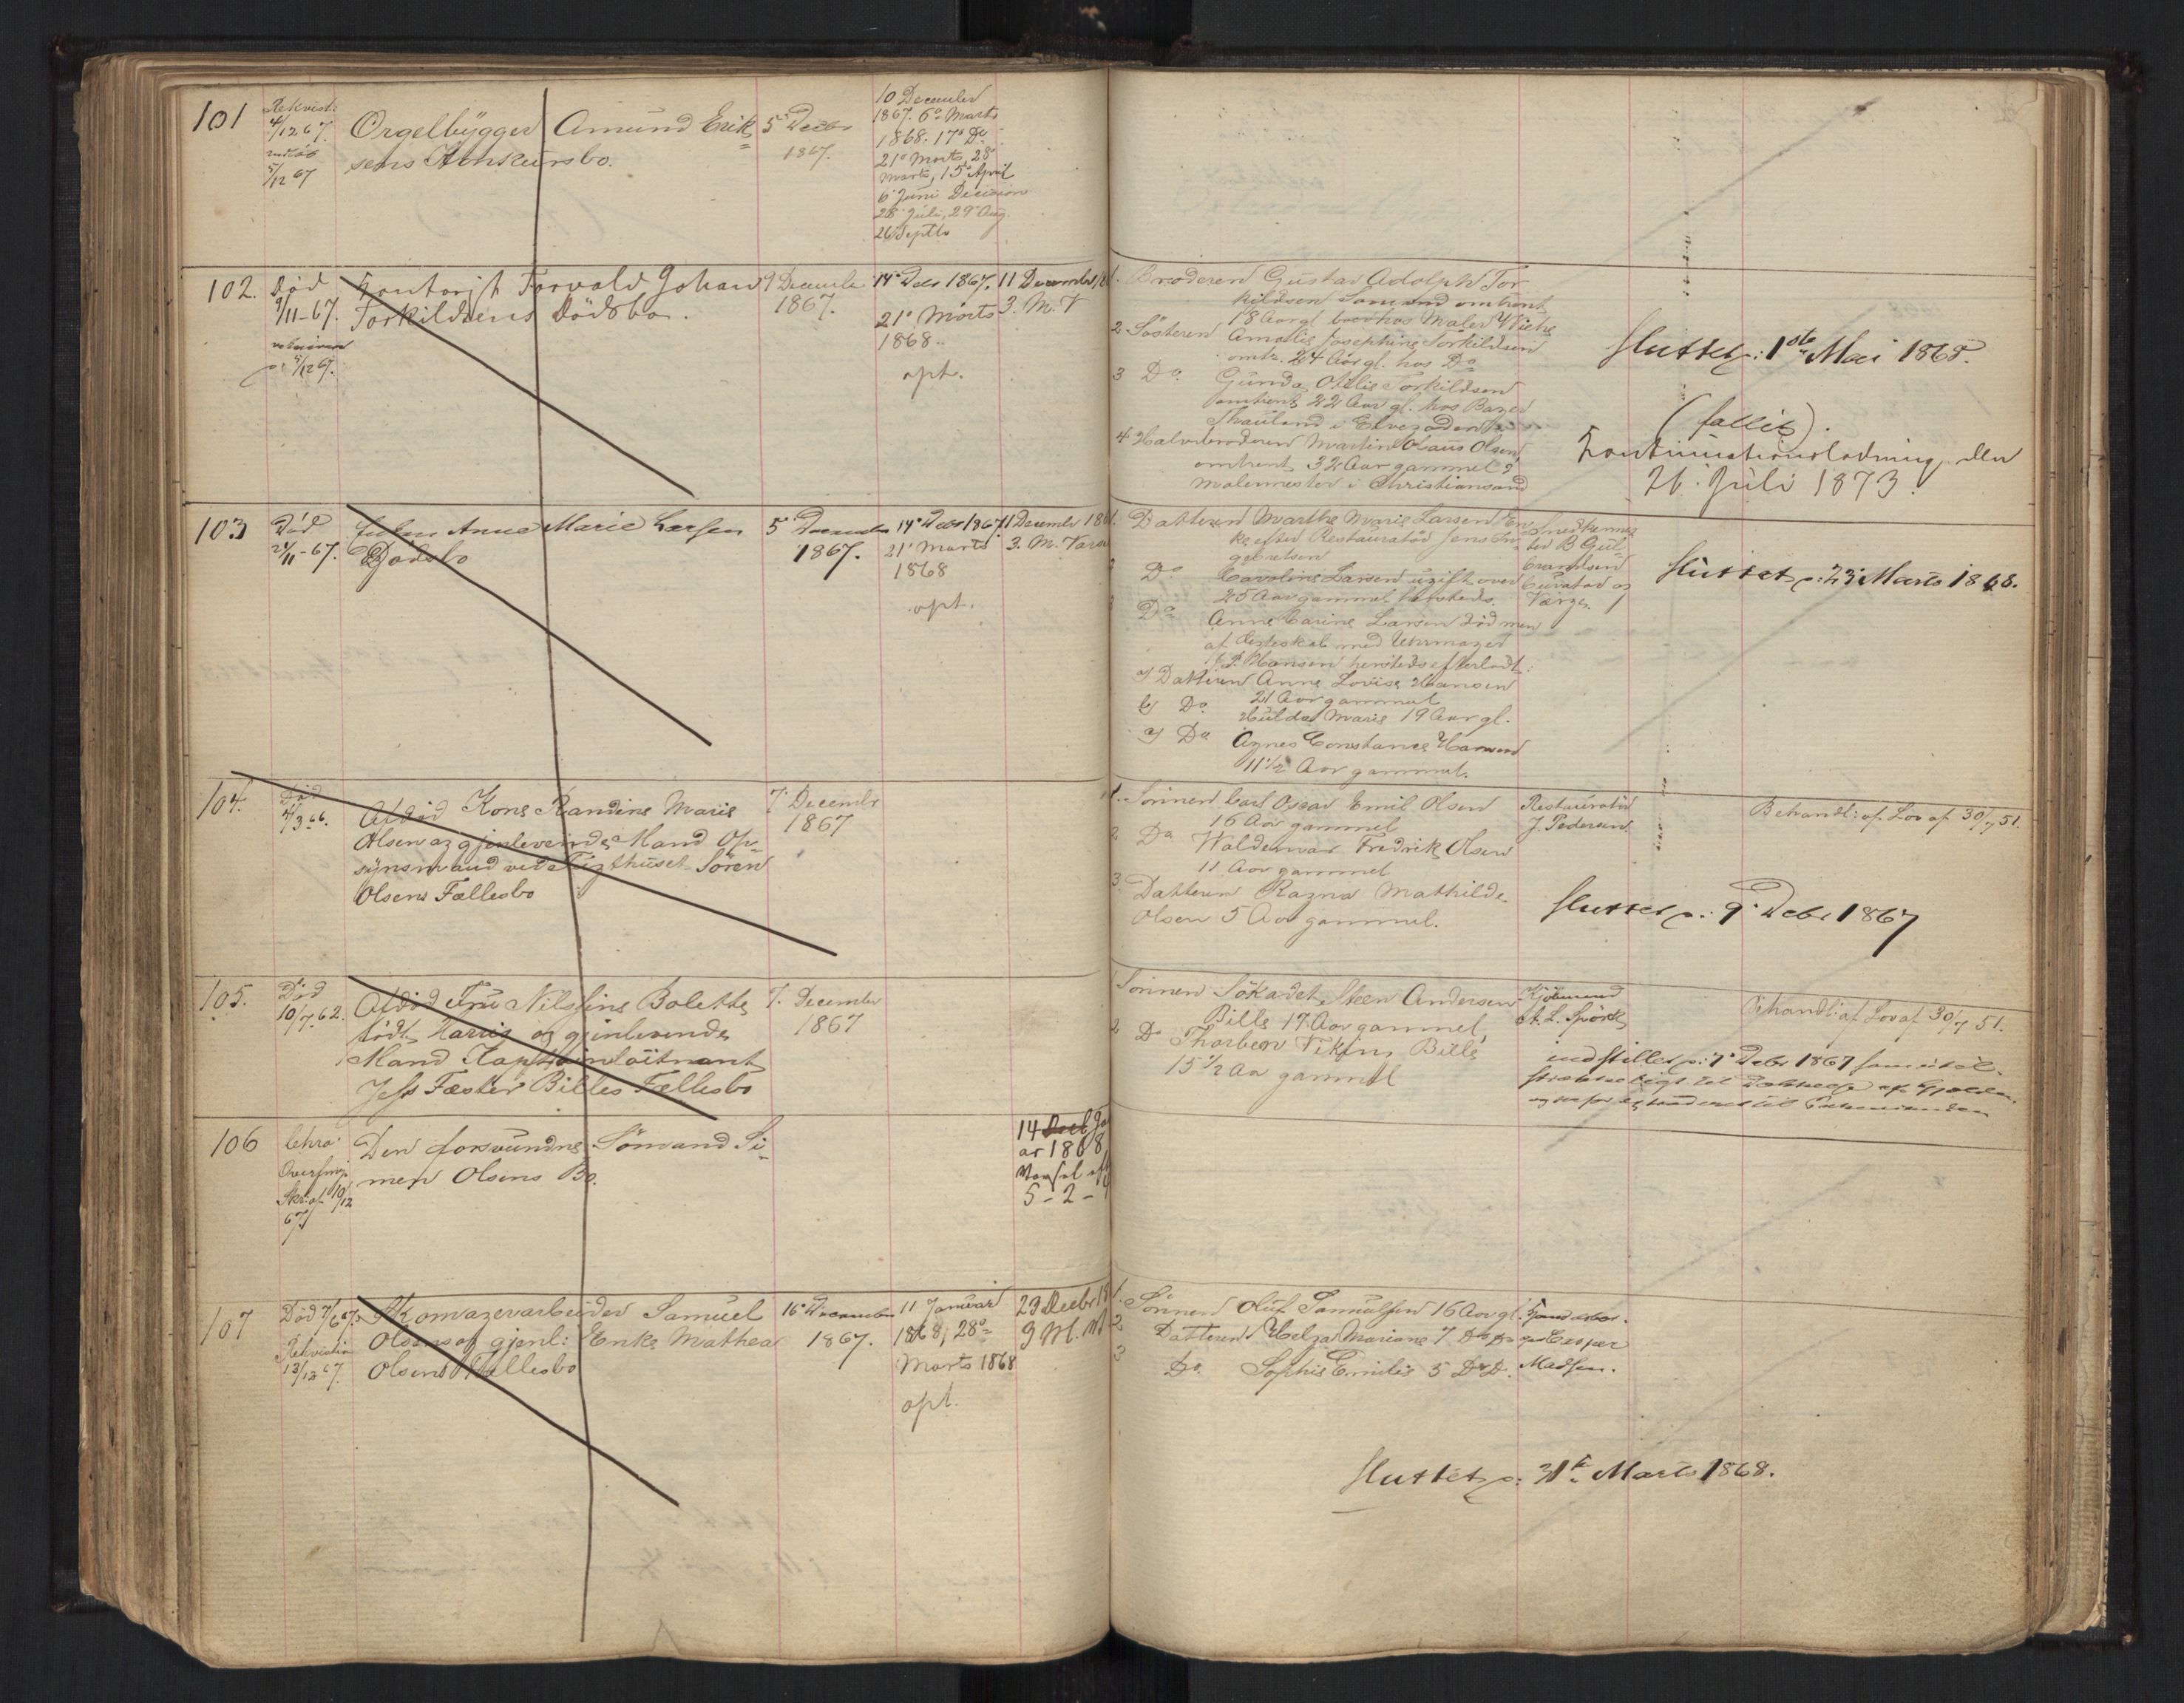 101
Rekvisit:
4/12 67.
5/12 67
Orgelbygger Amund Erik=
sens Konkursbo.
5 Decbr
1867.
10 December
1867. 6te Marts
1868. 17de Do
21de Marts, 28de
Marts, 15de April
6te Juni Decision
28 Juli, 29 Aug.
26 Septbr
102.
Död
9/11-67.
5/12 67.
Kontorist Torvald Johan
Torkildsens Dödsbo.
9 December
1867.
14de Decbr 1867.
21de Marts
1868.
opt.
11 December 186
3. M. V
1. Broderen Gustav Adolph Tor
kildsen Sömand omtrent
18 Aar gl. hos Maler Wiehe
2 Sösteren Amalie Josephine Torkildsen
omtr. 24 Aar gl. hos Do
3 Do. Gunda Otilie Torkildsen
omtrent 22 Aar gl. hos Bager
Skauland i Elvegaden
4 Halvbroderen Martin Olaus Olsen
omtrent 32 Aar gammel
Malermester i Christiansand
Sluttet p: 1ste Mai 1868.
(fallit).
Kontinuationsladning den
26. Juli 1873.
103
Död
21/11-67.
Anne Marie Larsen
Dödsbo
5 December
1867.
14de Decbr 1867
21de Marts
1868
opt.
11 December 186
3. M. Varsel
1. Datteren Marthe Marie Larsen En
ke efter Restauratör Jens In=
gebretsen
Do Caroline Larsen ugift over
25 Aar gammel hersteds.
Do Anne Carine Larsen död men
af Ægteskab med Uhrmager
Hansen hersteds efterladt:
a) Datteren Anne Lovise Hansen
21 Aar gammel
b) Do. Hulda Marie 19 Aar gl.
c) Do Agnes Constance Hansen
11 1/2 Aar gammel.
Snedkermes
ter B Gul=
brandsen
Curator og
Værge.
Sluttet p: 23de Marts 1868.
104.
Död
4/3 66.
Afdöd Kone Randine Marie
Olsen og gjenlevende Mand Op=
synsmand ved Tugthuset Sören
Olsens Fællesbo
7 Decembr
1867
1. Sönnen Carl Oscar Emil Olsen
16 Aar gammel
2 Do Waldemar Fredrik Olsen
11 Aar gammel
3. Datteren Ragna Mathilde
Olsen 5 Aar gammel.
Restauratör
J. Pedersen.
Behandl: af Lov af 30/7 51.
Sluttet p: 9de Decbr 1867
105.
Död
10/7 62.
Afdöd Fru Nilsine Bolette
födt Harris og gjenlevende
Mand Kapteinlöitnant
Jess Fæster Billes Fællesbo
7. December
1867
1 Sönnen Sökadet Steen Andersen
Bille 17 Aar gammel,
2 Do Thorben Viking Bille
15 1/2 Aar gammel
Kjöbmand
A. L. Spörck
Behandl: af Lov af 30/7 51.
indstillet p: 7de Decbr 1867 som util=
strækkeligt til Dækkelse af Gjælden
106
Chra:
Overform:
Skr: af 10/12
67.
Den forsvundne Sömand Si=
men Olsens Bo.
14 Decb Ja
ar 1868
Varsel aft
5-2-
107
Död 7/6 67.
Rekvisition
13/12 67.
Skomagerarbeider Samuel
Olsens og gjenl: Enke Mathea
Olsens Fællesbo
16de December
1867.
11 Januar
1868, 28de
Marts 1868
opt.
23 Decbr 186
9 M. V
1. Sönnen Oluf Samuelsen 16 Aar gl.
2 Datteren Helga Mariane 7 Do Do
3 Do. Sophie Emilie 5 Do Do.
Casper
Madsen.
Sluttet p: 31te Marts 1868.